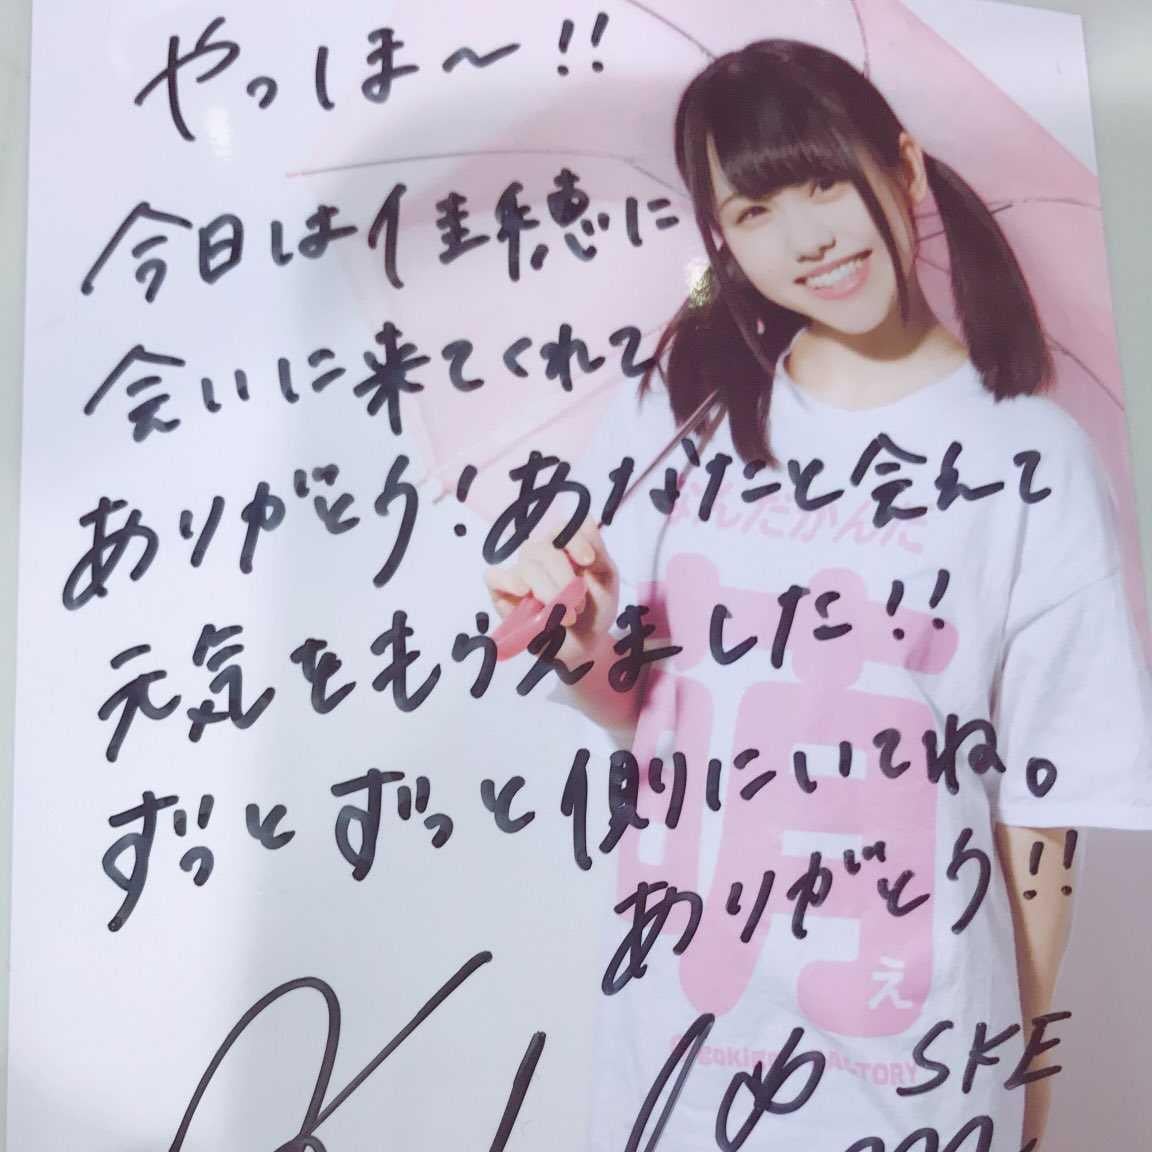 やっほ〜!!
今日は佳穂恵に
会いに来てくれて
ありがとう!あなたと会えて
元気をもらえました!!
ずっとずっと側にいてね。
ありがとう!!
SKE
なんだかんだ
萌
ぇ
FACTORY